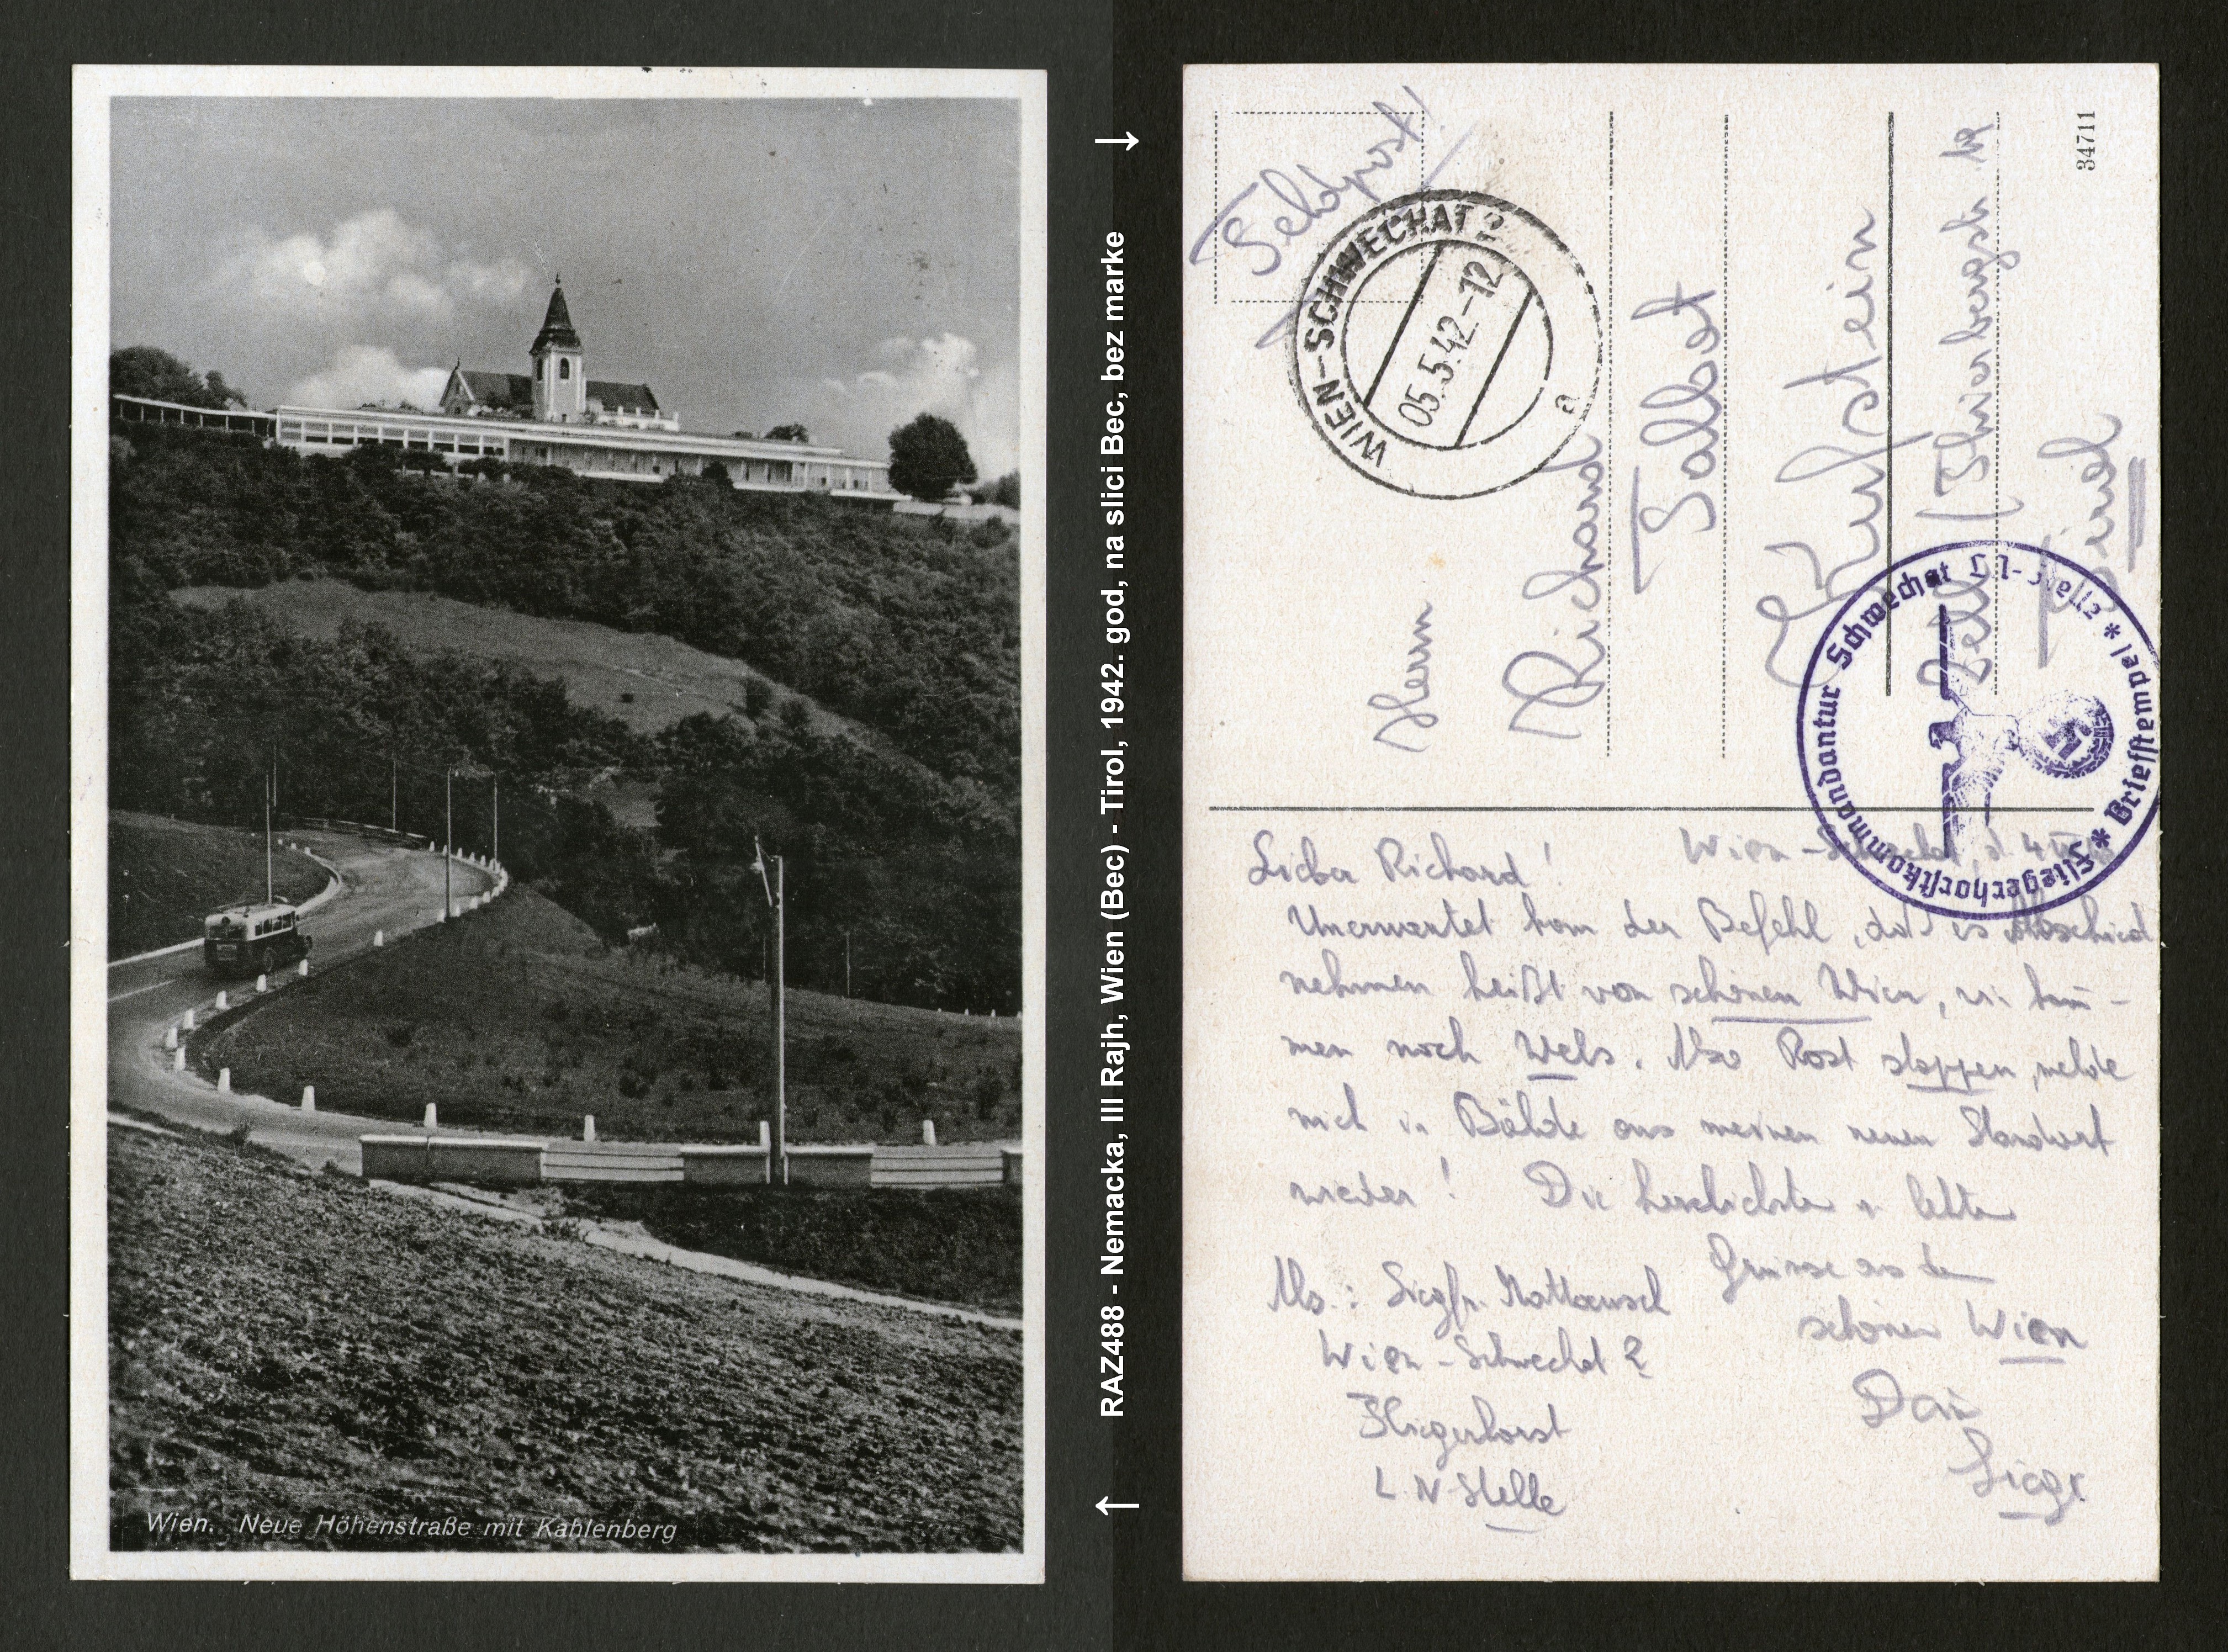 Wien. Neue Höhenstraße mit Kahlenberg
RAZ488 - Nemacka, III Rajh, Wien (Bec) - Tirol, 1942. god, na slici Bec, bez marke
Feldpost!
WIEN-SCHWECHAT 2
05.5.42.-12
a
Herrn
Richard
Talbot
Kufstein
Zell (Thierbergstr.
Tirol
34711
Fliegerhorstkommandantur Schwechat L.N.-Stelle * Briefstempel *
Wien-Schwechat, d. 4.
Lieber Richard!
Unerwartet kam der Befehl, daß es Abschied
nehmen heißt von schönen Wien, wir kom-
men nach Wels. Also Post stoppen, melde
mich in Bälde aus meinen neuen Standort
wieder! Die herzlichsten u. letzten
Grüsse aus dem
schönen Wien
Dein
Siegf.
Abs.: Siegfr. Mattausch
Wien-Schwechat 2
Fliegerhorst
L.N-Stelle